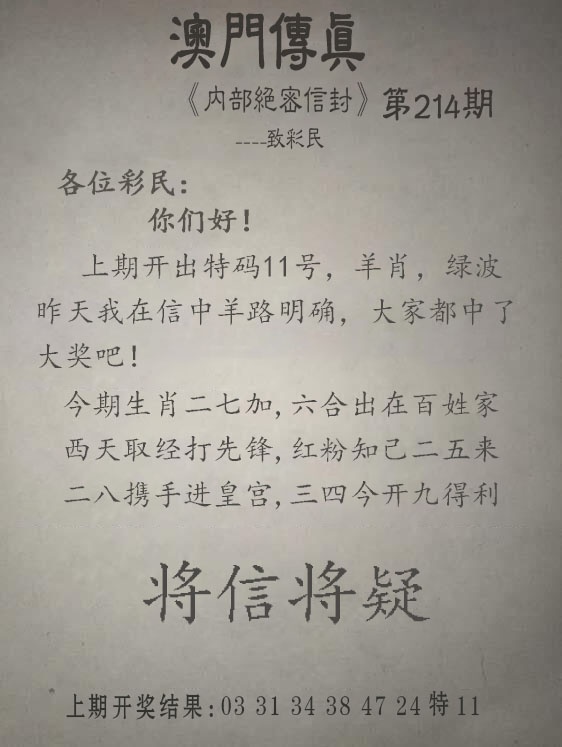 澳門傳真
《内部絕密信封》第214期
----致彩民
各位彩民:
你们好!
上期开出特码11号，羊肖，绿波
昨天我在信中羊路明确，大家都中了
大奖吧!
今期生肖二七加,六合出在百姓家
西天取经打先锋,红粉知己二五来
二八携手进皇宫,三四今开九得利
将信将疑
上期开奖结果:03 31 34 38 47 24特11